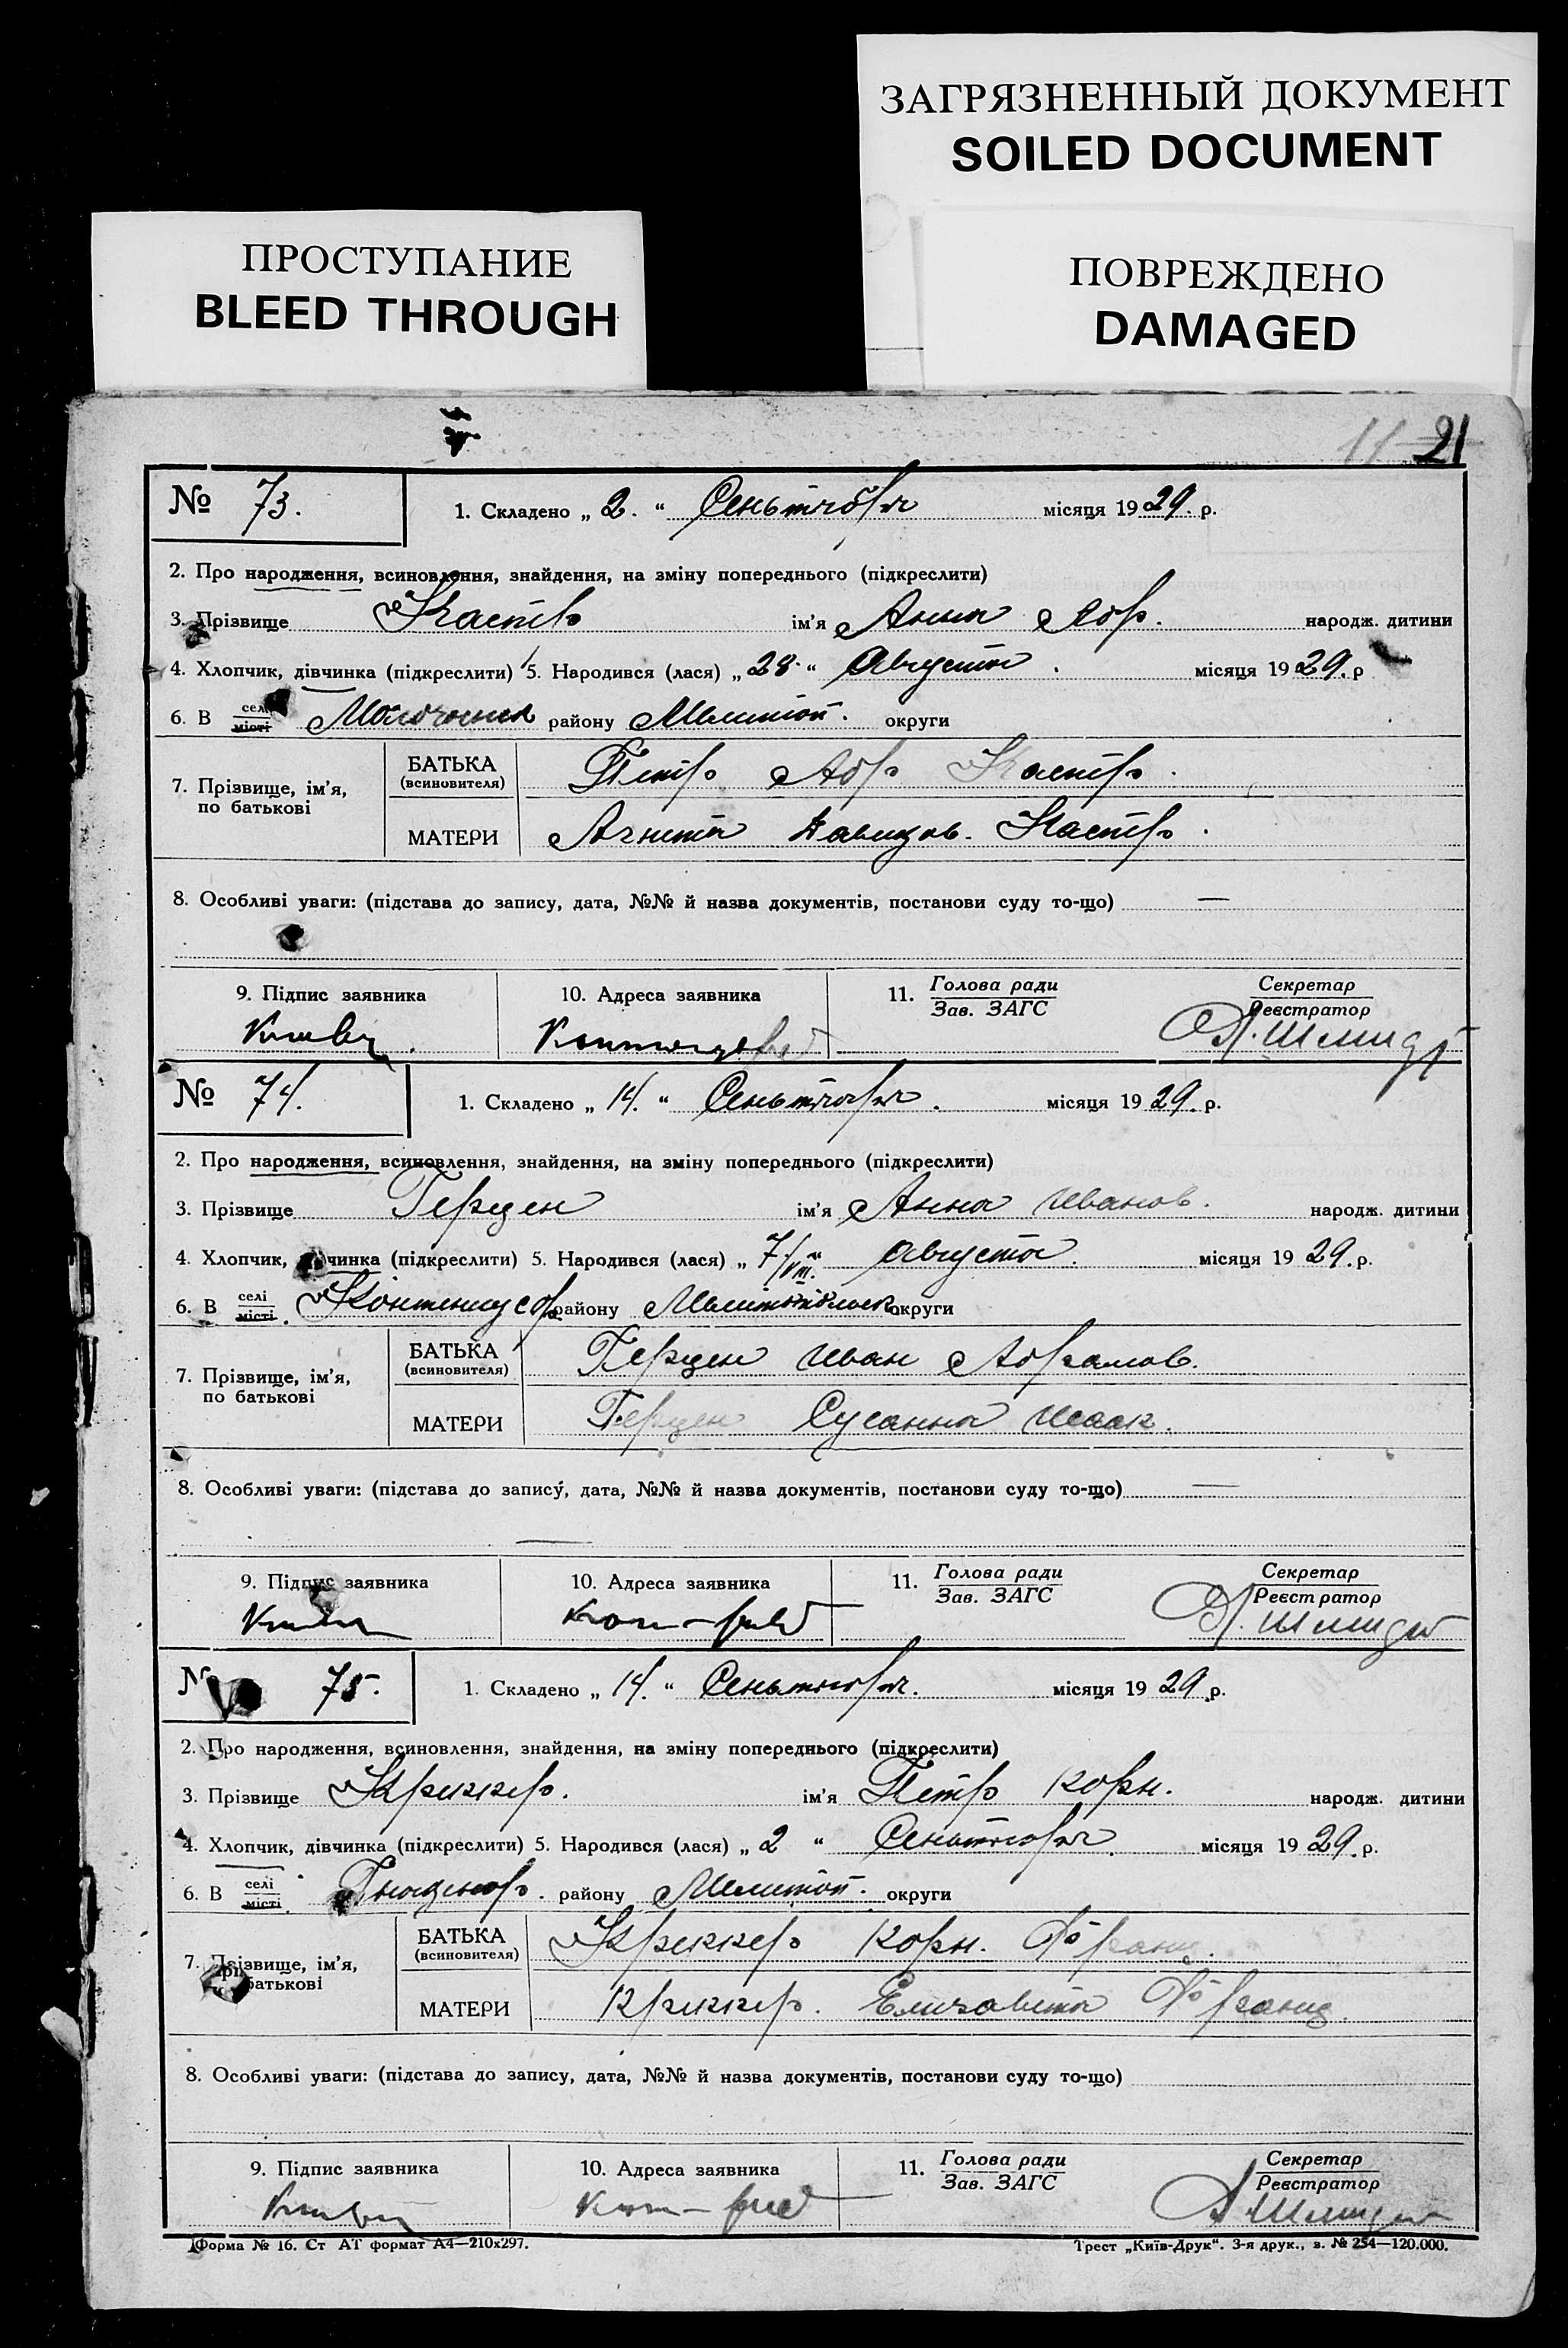 ЗАГРЯЗНЕННЫЙ ДОКУМЕНТ
SOILED DOCUMENT
ПРОСТУПАНИЕ
BLEED THROUGH
ПОВРЕЖДЕНО
DAMAGED
11 21
№ 73. 1. Складено „ 2. “ Сеньтября місяця 1929. р.
2. Про народження, всиновлення, знайдення, на зміну попереднього (підкреслити)
3. Прізвище ім'я Анна Абр. народж. дитини
4. Хлопчик, дівчинка (підкреслити) 5. Народився (лася) „ 28. “ Августа. місяця 1929. р
6. В селі місті району Мелитоп. округи
БАТЬКА
(всиновителя) Петр Абр
7. Прізвище, ім'я,
по батькові
МАТЕРИ Агнета Давидов.
8. Особливі уваги: (підстава до запису, дата, №№ й назва документів, постанови суду то-що) —
9. Підпис заявника 10. Адреса заявника 11. Голова ради Секретар
Зав. ЗАГС Реєстратор
Шмидт
№ 74. 1. Складено „ 14. “ Сеньтября. місяця 1929. р.
2. Про народження, всиновлення, знайдення, на зміну попереднього (підкреслити)
3. Прізвище Герцен ім'я Анна Иванов. народж. дитини
4. Хлопчик, дівчинка (підкреслити) 5. Народився (лася) „ 7/VIII. “ Августа. місяця 1929. р.
6. В селі місті району округи
БАТЬКА
(всиновителя) Герцен Иван Абрамов.
7. Прізвище, ім'я,
по батькові
МАТЕРИ Герцен Сусанна Исаак.
8. Особливі уваги: (підстава до запису, дата, №№ й назва документів, постанови суду то-що) —
—
9. Підпис заявника 10. Адреса заявника 11. Голова ради Секретар
Зав. ЗАГС Реєстратор
Шмидт
№ 75. 1. Складено „ 14. “ Сеньтября. місяця 1929 р.
2. Про народження, всиновлення, знайдення, на зміну попереднього (підкреслити)
3. Прізвище Креккер. ім'я Петр Корн. народж. дитини
4. Хлопчик, дівчинка (підкреслити) 5. Народився (лася) „ 2 “ Сеньтября. місяця 1929. р.
6. В селі місті. району Мелитоп. округи
БАТЬКА
(всиновителя) Креккер Корн. Франц.
7. Прізвище, ім'я,
по батькові
МАТЕРИ Креккер. Елизавета Франц.
8. Особливі уваги: (підстава до запису, дата, №№ й назва документів, постанови суду то-що)
9. Підпис заявника 10. Адреса заявника 11. Голова ради Секретар
Зав. ЗАГС Реєстратор
Шмидт
Форма № 16. Ст АТ формат А4—210х297. Трест „Київ-Друк“. 3-я друк., з. № 254—120.000.